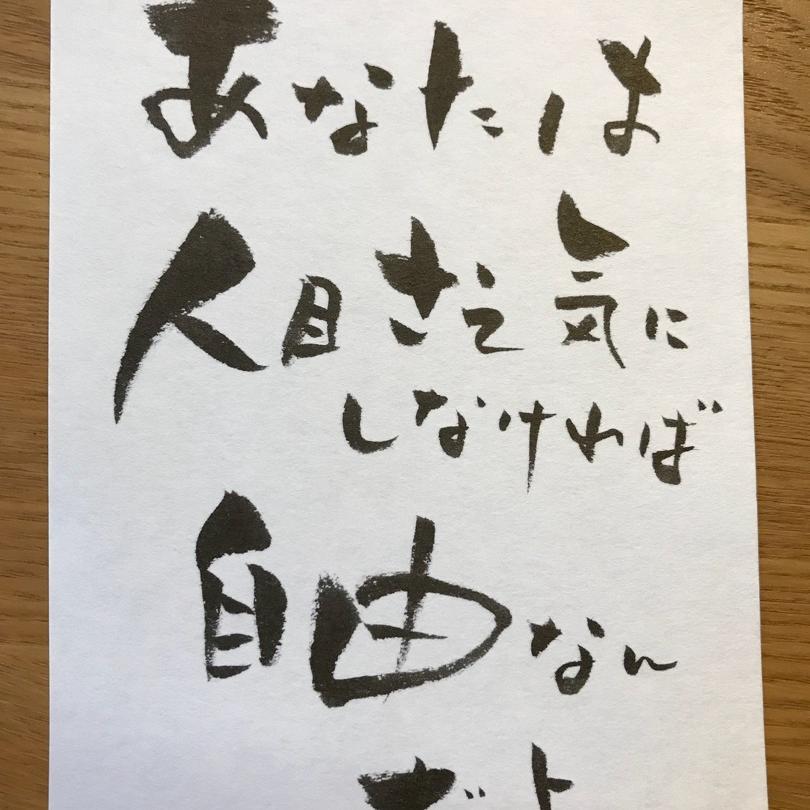 あなたは
人目さえ気に
しなければ
自由なん